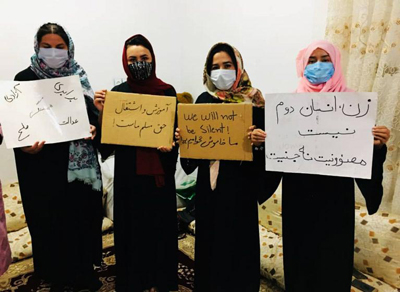 عدالت
آموزش و اشتغال
حق مسلم ماست!
We will not
be Silent!
ما خاموش
زن، انسان دوم
نیست
مصؤنیت نه جنسیت